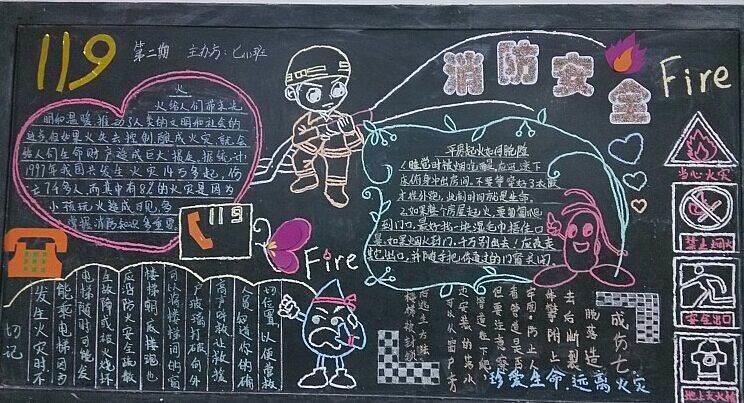 119
第二期 主办方:七(1)班
消防安全
Fire
火
火给人们带来光
明和温暖,推动了人类的文明和社会的
进步,但如果火失去控制,酿成火灾,就会
给人们生命财产造成巨大损失,据统计
1997年我国共发生火灾14万多起,伤
亡7千多人,而其中有8%的火灾是因为
小孩玩火造成,可见,多
掌握消防知识多重要
119
Fire
平房起火如何脱险
1.睡觉时被烟呛醒,应迅速下
床俯身冲出房间,不要等穿好了衣服
才往外跑,此刻时间就是生命。
2.如果整个房屋起火,要匍匐爬
到门口,最好找一块湿毛巾捂住口
鼻,如果烟火封门,千万别出去!应改走
其它出口,并随手把你通过的门窗关闭。
当心火灾
禁止烟火
安全出口
地上灭火栓
切记
发生火灾时不
能乘电梯因为
电梯随时可能发
生故障或被火烧坏
应沿防火安全疏散
楼梯朝底楼跑也
可以将楼梯间的窗
户玻璃打破向外
高声呼救让救援
人员知道你的确
切位置以便营救
成伤亡
脱落造
去后断裂
珍爱生命,远离火灾